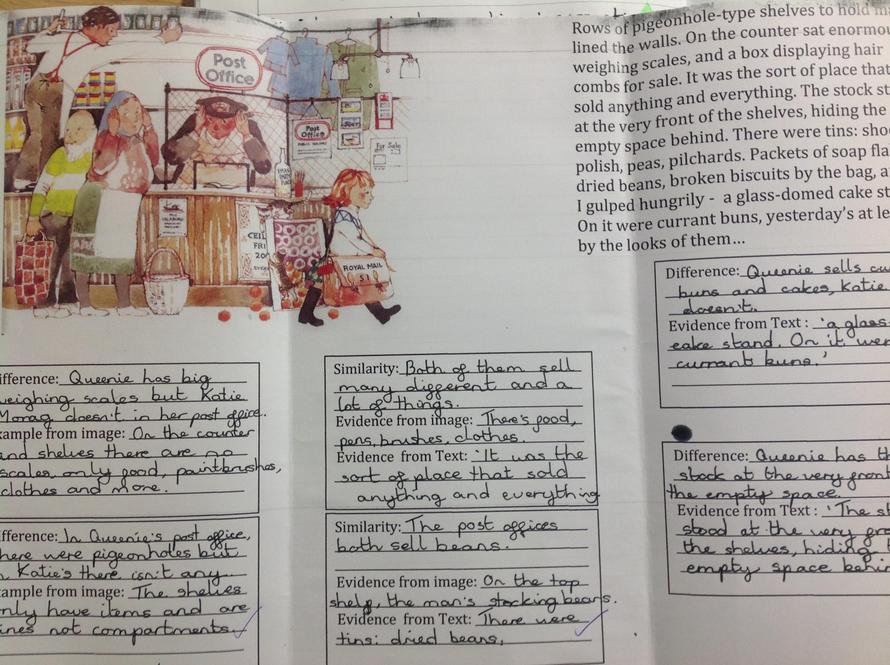 Post
Office
Post
Office
For Sale
ROYAL MAIL
Rows of pigeonhole-type shelves to hold
lined the walls. On the counter sat enormou
weighing scales, and a box displaying hair
combs for sale. It was the sort of place that
sold anything and everything. The stock st
at the very front of the shelves, hiding the
empty space behind. There were tins: sho
polish, peas, pilchards. Packets of soap fla
dried beans, broken biscuits by the bag, a
I gulped hungrily - a glass-domed cake st
On it were currant buns, yesterday's at le
by the looks of them...
ifference: Queenie has big
weighing scales but Katie
Morag doesn't in her post office.
xample from image: On the counter
and shelves there are no
scales only food, paintbrushes,
clothes and more.
ifference: In Queenie's post office,
here were pigeonholes but
n Katie's there isn't any.
xample from image: The shelves
only have items and are
ines not compartments.
Similarity: Both of them sell
many different and a
lot of things.
Evidence from image: There's food,
pens, brushes, clothes.
Evidence from Text: 'It was the
sort of place that sold
anything and everything
Similarity: The post offices
both sell beans.
Evidence from image: On the top
shelf, the man's stocking beans.
Evidence from Text: There were
tins: dried beans,
Difference: Queenie sells cu
buns and cakes, Katie
doesn't.
Evidence from Text: 'a glass
cake stand. On it wer
currant buns.'
Difference: Queenie has th
stock at the very front
the empty space.
Evidence from Text: 'The st
stood at the very fro
the shelves, hiding t
empty space behin